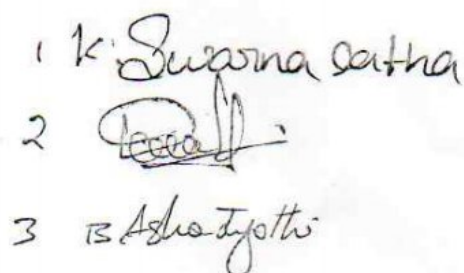 1 K. Swarna Latha
2
3 B Asha Jyothi